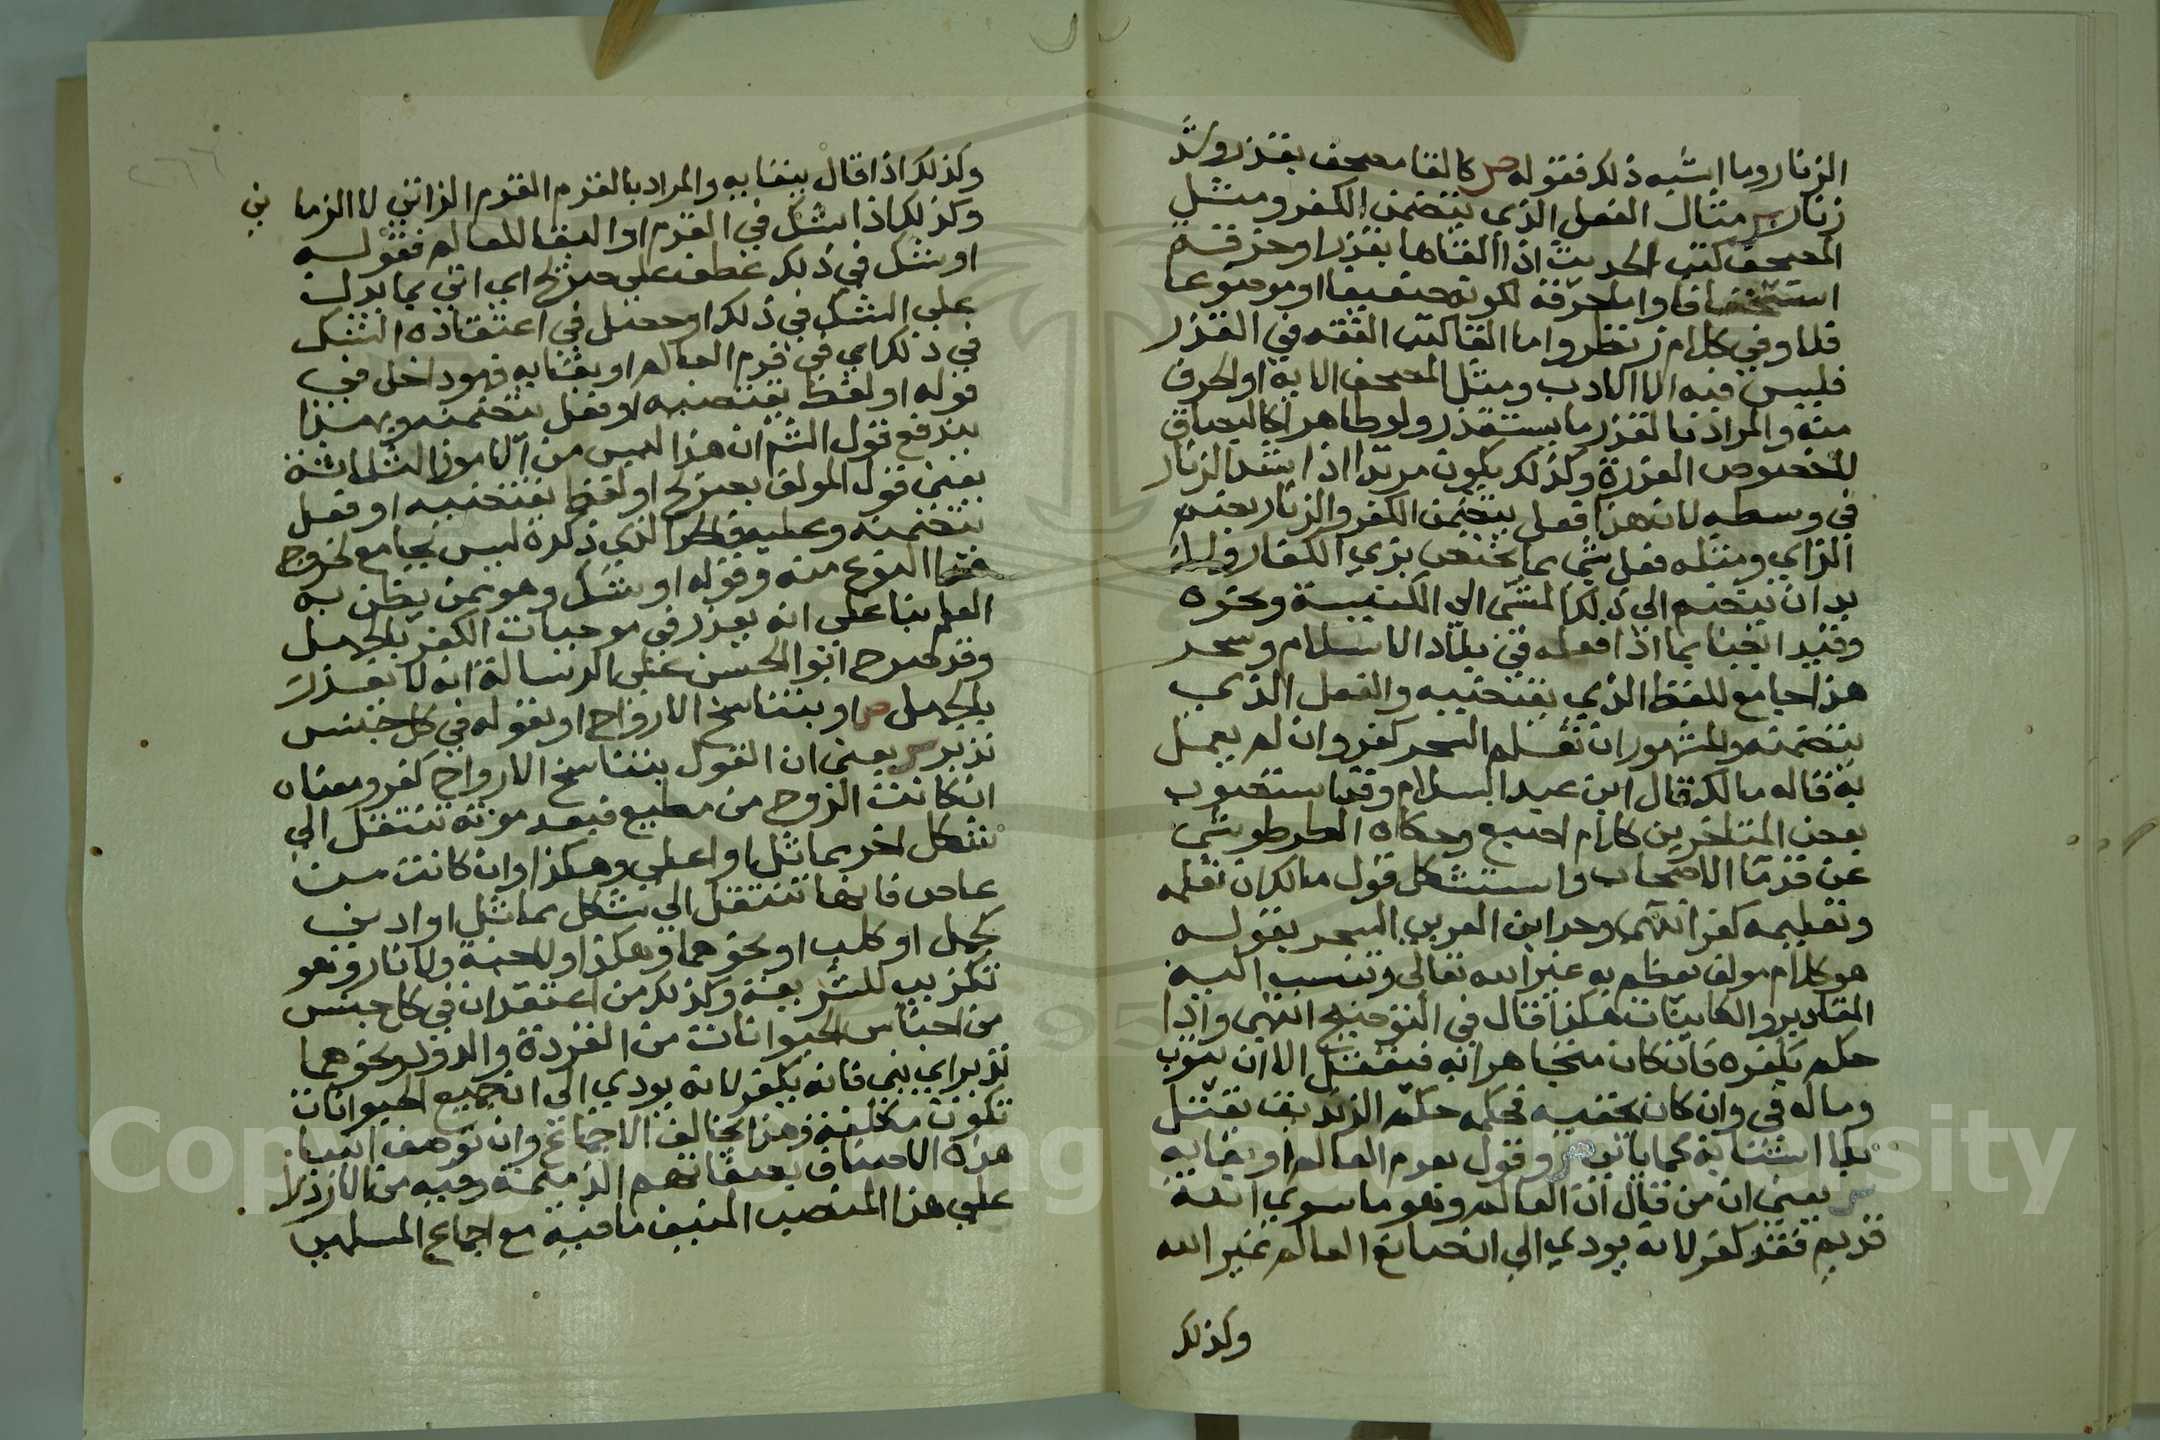 الزنار وما اشبه ذلك فقوله ص كالقا مصحف بقذر وشد
زنار س مثال الفعل الذي يتضمن الكفر ومثل
المصحف كتب الحديث اذا القاها بقذر او حرقه
استخفافا وان احرقه لكونه ضعيفا او موضوعا
فلا وفي كلام ز نظر واما القا كتب الفقه في القذر
فليس فيه الا الادب ومثل المصحف الاية او الحرف
منه والمراد بالقذر ما يستقذر ولو طاهرا كالبصاق
لا خصوص العذرة وكذلك يكون مرتدا اذا شد الزنار
في وسطه لان هذا فعل يتضمن الكفر والزنار بضم
الزاي ومثله فعل شي مما يختص بزي الكفار ولا
بد ان ينضم الى ذلك المشي الى الكنيسة ونحوه
وقيد ايضا بما اذا فعله في بلاد الاسلام وسحر
هذا جامع للفظ الذي يقتضيه والفعل الذي
يتضمنه والمشهور ان تعلم السحر كفر وان لم يعمل
به قاله مالك قال ابن عبد السلام وقد استصوب
بعض المتاخرين كلام اصبغ وحكاه الطرطوشي
عن قدما الاصحاب واستشكل قول مالك ان تعلمه
وتعليمه كفر انتهى وحد ابن العربي السحر بقوله
هو كلام مولف يعظم به غير الله تعالى وتنسب اليه
المقادير والكاينات هكذا قال في التوضيح انتهى واذا
حكم بكفره فان كان متجاهرا به فيقتل الا ان يتوب
وماله في وان كان يخفيه فحكمه حكم الزنديق يقتل
بلا استتابة كما ياتي ص وقول بقدم العالم او بقايه
س يعني ان من قال ان العالم وهو ما سوى الله
قديم فقد كفر لانه يودي الى ان صانع العالم غير الله
وكذلك
وكذلك اذا قال ببقايه والمراد بالقدم القدم الذاتي لا الزما ني
وكذلك اذا شك في القدم او البقا للعالم فقوله
او شك في ذلك عطف على صريح اي اتى بما يدل
على الشك في ذلك او حصل في اعتقاده الشك
في ذلك اي في قدم العالم او بقايه فهو داخل في
قوله او لفظ يقتضيه او فعل يتضمنه وبهذا
يندفع قول الش ان هذا ليس من الامور الثلاثة
يعني قول المولف بصريح او لفظ يقتضيه او فعل
يتضمنه وعليه فالحد الذي ذكره ليس بجامع لخروج
هذا النوع منه وقوله او شك وهو ممن يظن به
العلم بنا على انه يعذر في موجبات الكفر بالجهل
وقد صرح ابو الحسن على الرسالة انه لا يعذر
بالجهل ص او بتناسخ الارواح او بقوله في كل جنس
نذير س يعني ان القول بتناسخ الارواح كفر ومعناه
ان كانت الروح من مطيع فبعد موته تنتقل الى
شكل اخر مماثل او اعلى وهكذا وان كانت من
عاص فانها تنتقل الى شكل مماثل او ادنى
كجمل او كلب او نحوهما وهكذا ولا جنة ولا نار وهو
تكذيب للشريعة وكذلك من اعتقد ان في كل جنس
من اجناس الحيوانات من القردة والدود ونحوهما
نذير اي نبي فانه يكفر لانه يودي الى ان جميع الحيوانات
تكون مكلفة وهذا يخالف الاجماع وان توصف انبياء
هذه الاصناف بصفاتهم الذميمة وفيه من الازدرا
على هذا المنصب المنيف ما فيه مع اجماع المسلمين
Copyright © King Saud University